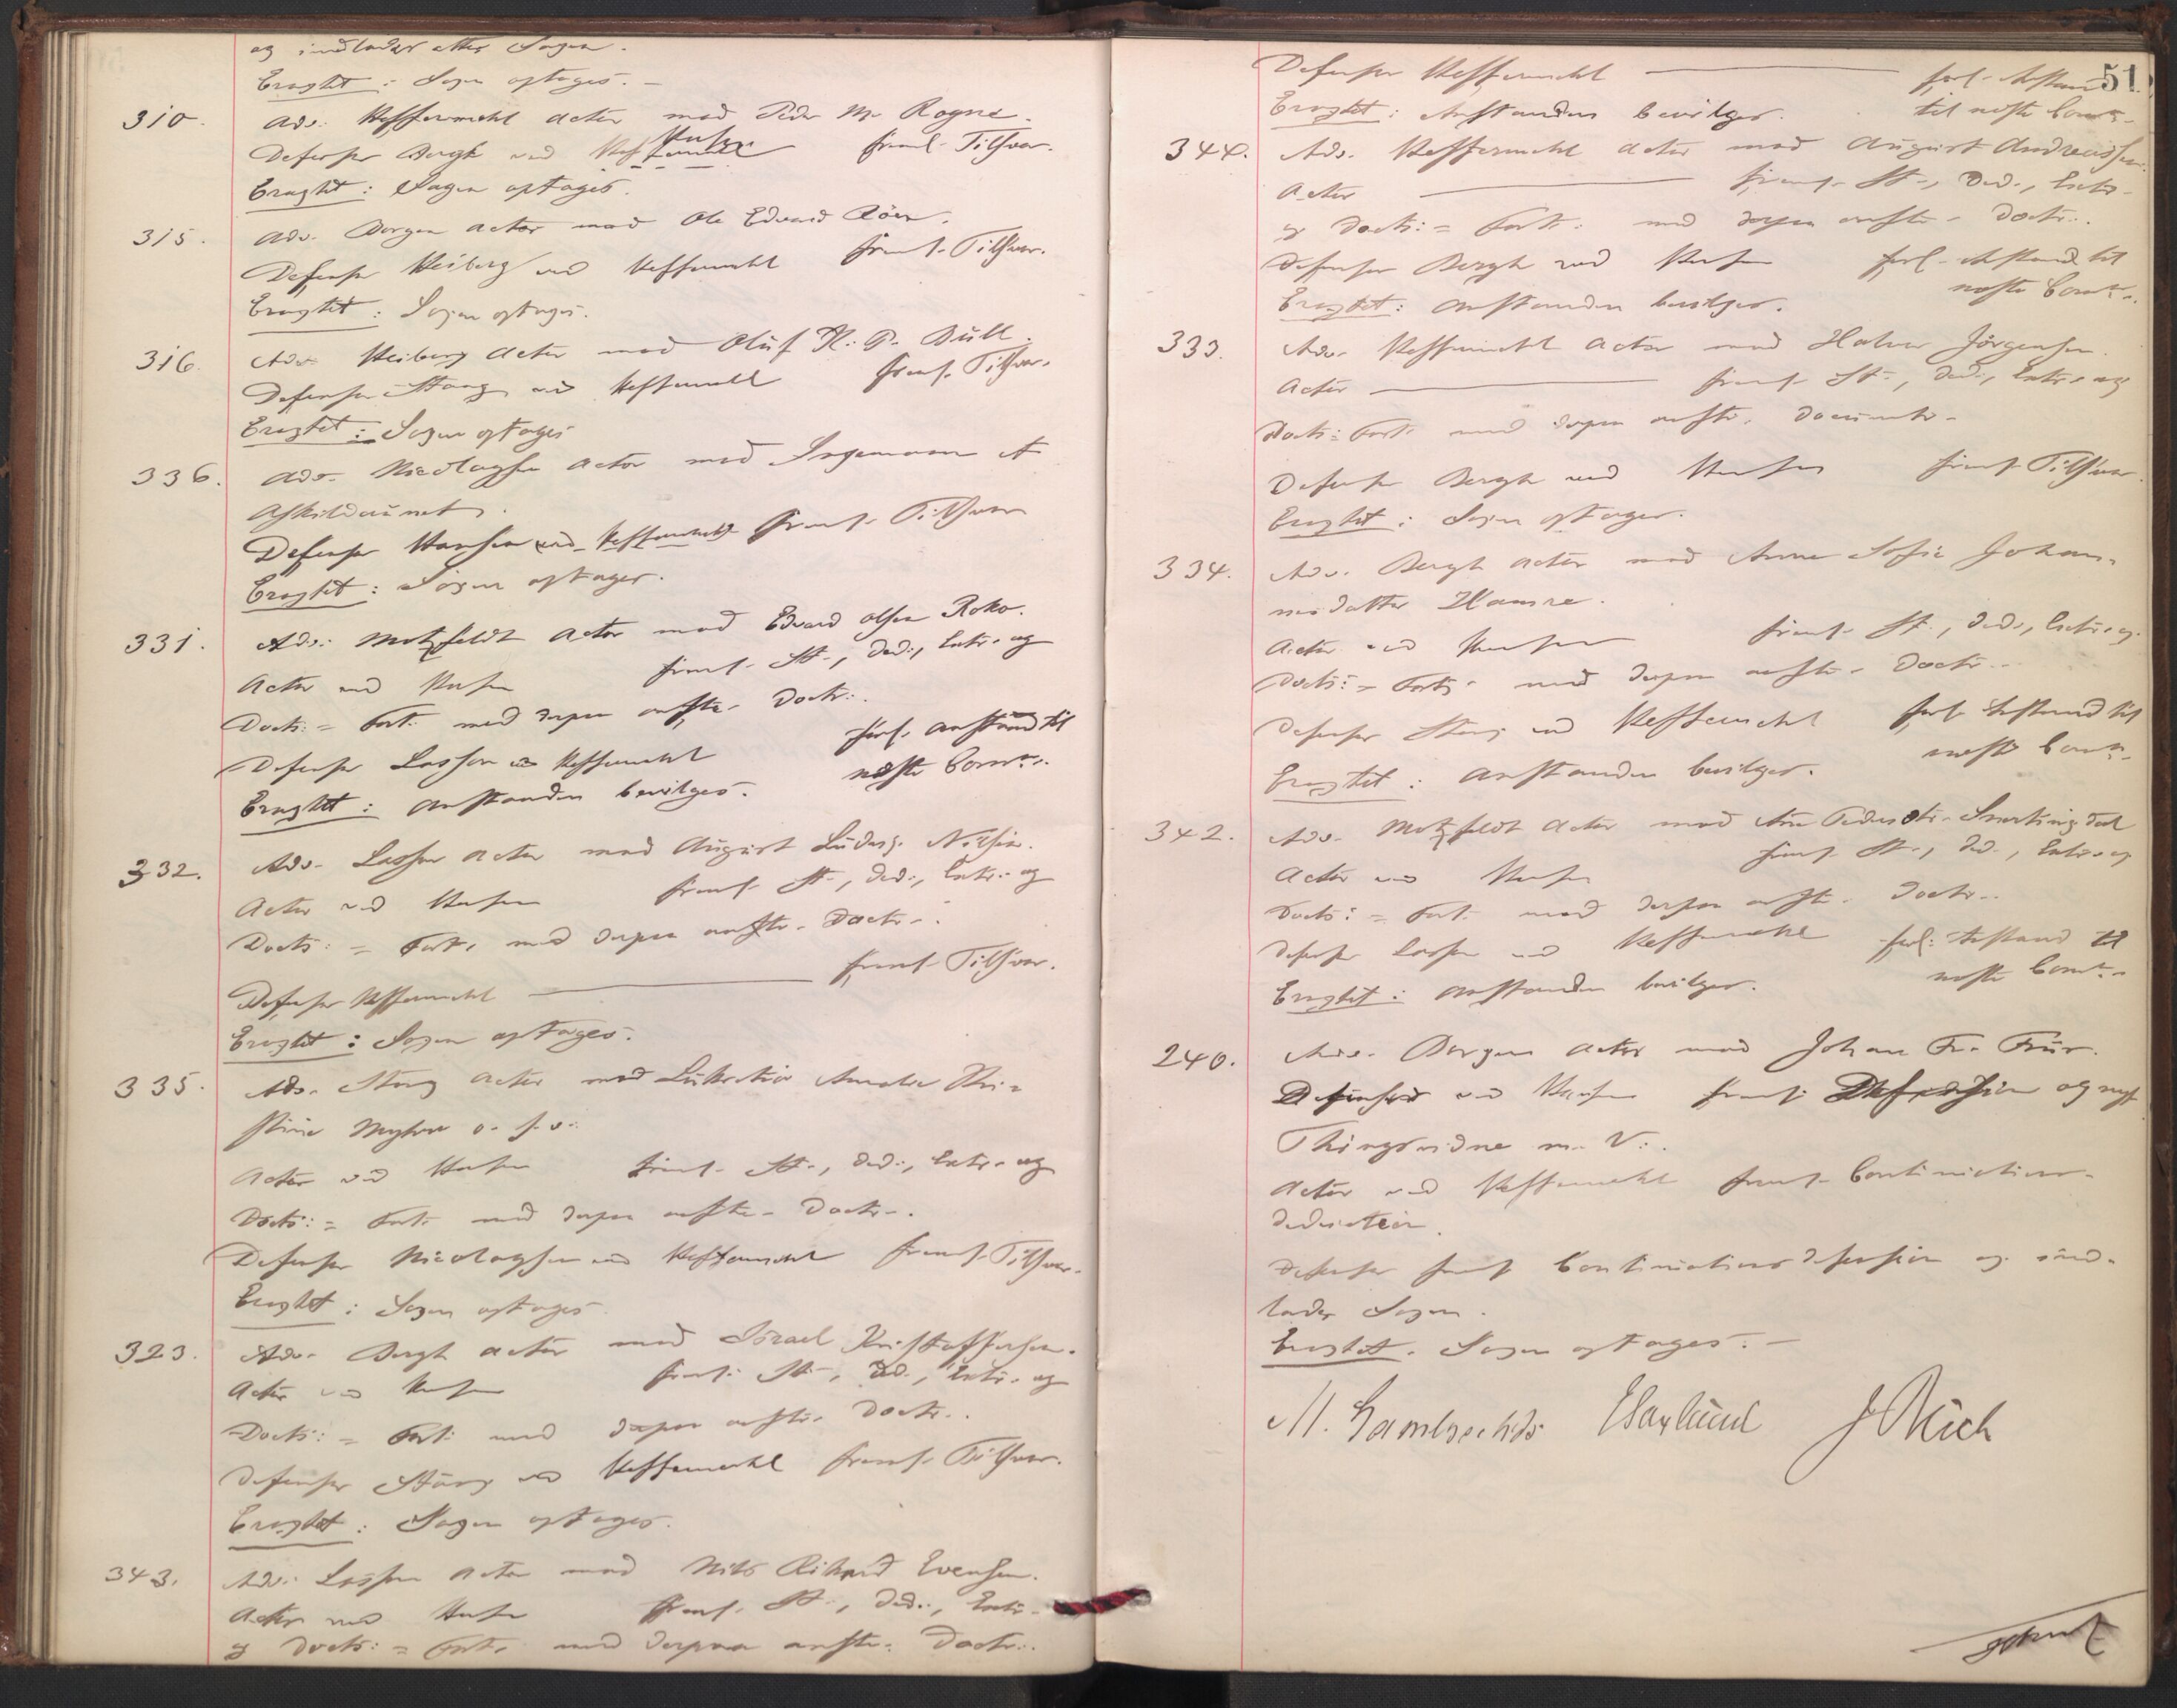 og indlader atter Sagen.
Eragtet: Sagen optages. –
310. Adv. Heffermehl Actor mod Peder M. Rogne.
Defensor Bergh ved Hansen freml. Tilsvar.
Eragtet: Sagen optages.
315. Adv. Dorgen Actor mod Ole Edvard Röen.
Defensor Heiberg ved Heffermehl freml. Tilsvar.
Eragtet: Sagen optages.
316. Adv. Heiberg Actor mod Oluf H. P. Bull.
Defensor Stang ved Heffermehl freml. Tilsvar.
Eragtet: Sagen optages
336. Adv. Nicolaysen Actor mod Ingemann A
Defensor Hansen ved Heffermehl freml. Tilsvar
Eragtet: Sagen optages.
331. Adv. Motzfeldt Actor mod Edvard Olsen Roko.
Actor ved Hansen freml. St., Ded., Extr. og
Docts: = Fort. med derpaa anførte Doctr.
Defensor Lasson ved Heffermehl forl. Anstand til
Eragtet: Anstanden bevilges. næste Comn.
332. Adv. Lasson Actor mod August Ludvig Nilsen.
Actor ved Hansen freml. St., Ded., Extr. og
Docts: = Fort. med derpaa anførte Doctr.
Defensor Heffermehl — freml. Tilsvar.
Eragtet: Sagen optages.
335. Adv. Stang Actor mod Lukretia Amalie Kri-
stine Myhre o. s. v.
Actor ved Hansen freml. St., Ded., Extr. og
Docts: = Fort. med derpaa anførte Doctr.
Defensor Nicolaysen ved Heffermehl freml. Tilsvar.
Eragtet: Sagen optages.
323. Adv. Bergh Actor mod Israel Kristoffersen.
Actor ved Hansen freml. St., Ded., Extr. og
Docts: = Fort. med derpaa anførte Doctr.
Defensor Stang ved Heffermehl freml. Tilsvar.
Eragtet: Sagen optages.
343. Adv. Lasson Actor mod Nils Rikard Evensen.
Actor ved Hansen freml. St., Ded., Extr.
og Docts: = Fort. med derpaa anførte Doctr.
51.
Defensor Heffermehl — forl. Anstand
Eragtet: Anstanden bevilges. til næste Comn.
344. Adv. Heffermehl Actor mod August Andreassen.
Actor — freml. St., Ded., Extr.
og Docts: = Fort. med derpaa anførte Doctr.
Defensor Bergh ved Hansen forl. Anstand til
Eragtet: Anstanden bevilges. næste Comn.
333. Adv. Heffermehl Actor mod Halvor Jörgensen.
Actor — freml. St., Ded., Extr. og
Docts: Fort. med derpaa anførte Documenter
Defensor Bergh ved Hansen freml. Tilsvar.
Eragtet: Sagen optages.
334. Adv. Bergh Actor mod Anne Sofie Johan-
nesdatter Hamre.
Actor ved Hansen freml. St., Ded., Extr. og
Docts: = Fort. med derpaa anførte Doctr.
Defensor Stang ved Heffermehl forl. Anstand til
Eragtet: Anstanden bevilges. næste Comn.
342. Adv. Motzfeldt Actor mod Ane Pedersdtr. Snertingdal
Actor ved Hansen freml. St., Ded., Extr. og
Docts: = Fort. med derpaa anførte Doctr.
Defensor Lasson ved Heffermehl forl. Anstand til
Eragtet: Anstanden bevilges. næste Comn.
240. Adv. Dorgen Actor mod Johan Fr. Frür.
Defensor ved Hansen freml. Defension og nyt
Thingsvidne m. V.
Actor ved Heffermehl freml. Continuations-
deduction.
Defensor freml. Continuationsdefension og ind-
lader Sagen.
Eragtet. Sagen optages. –